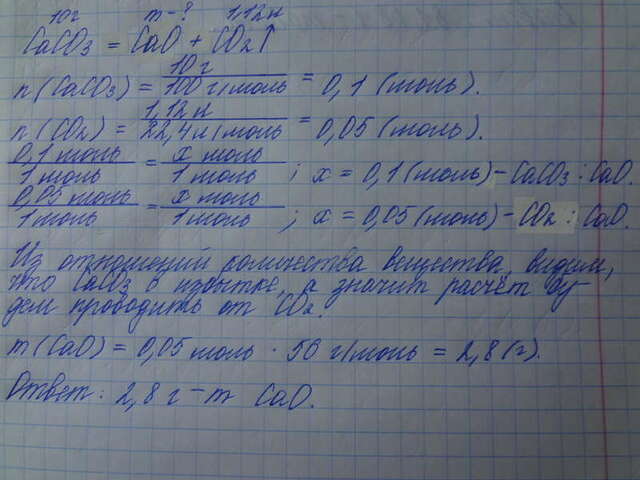 10г m-? 1,12л
CaCO₃ = CaO + CO₂↑
n(CaCO₃) = 10 г / 100 г/моль = 0,1 (моль).
n(CO₂) = 1,12 л / 22,4 л/моль = 0,05 (моль).
0,1 моль / 1 моль = x моль / 1 моль ; x = 0,1 (моль) – CaCO₃ : CaO.
0,05 моль / 1 моль = x моль / 1 моль ; x = 0,05 (моль) – CO₂ : CaO.
Из отношений количества вещества видим,
что CaCO₃ в избытке, а значит расчёт бу-
дем проводить от CO₂.
m(CaO) = 0,05 моль · 56 г/моль = 2,8 (г).
Ответ: 2,8 г – m CaO.